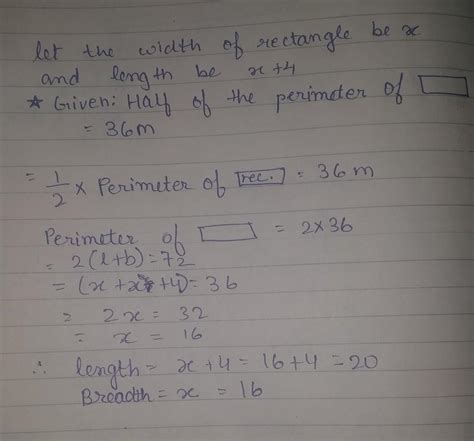 let the width of rectangle be x
and length be x+4
* Given: Half of the perimeter of
= 36m
= 1/2 x Perimeter of rec. = 36 m
Perimeter of = 2x36
= 2(l+b)=72
= (x+x+4)=36
= 2x = 32
= x = 16
∴ length = x+4 = 16+4 = 20
Breadth = x = 16